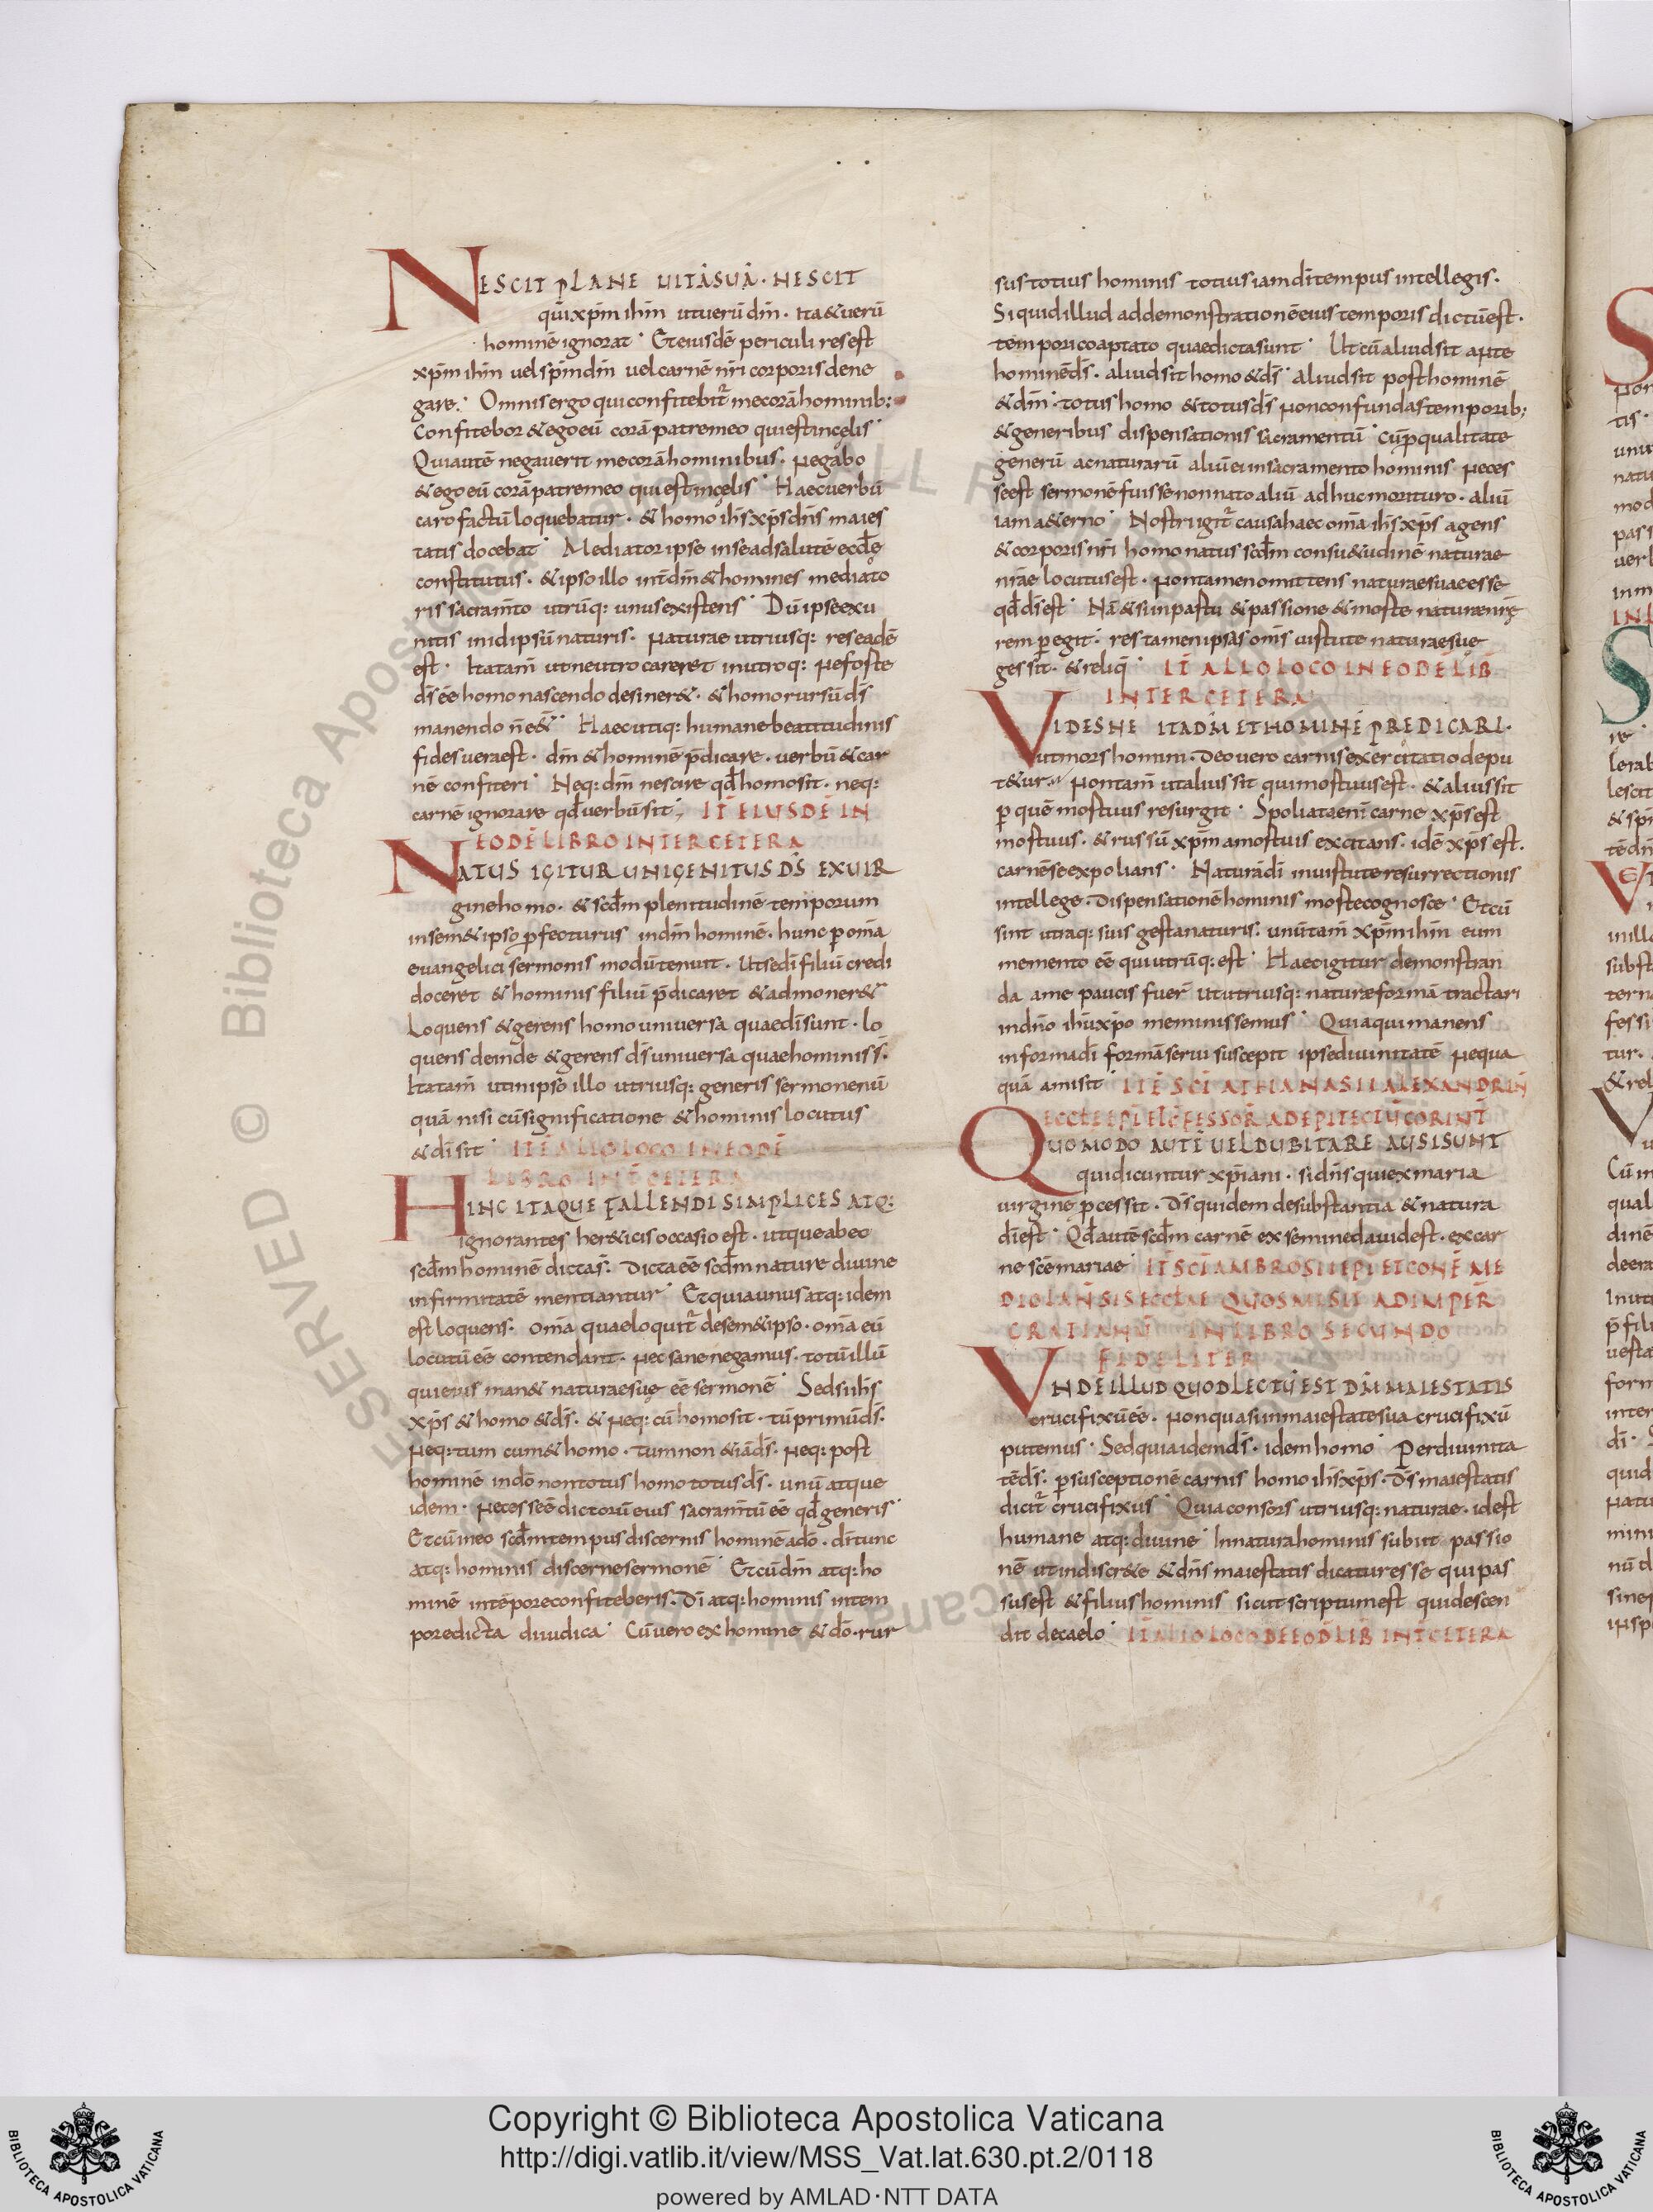 NESCIT PLANE UITĀ SUĀ · NESCIT
qui xp̄m ih̄m ut uerū dm̄ · ita & uerū
hominē ignorat · Et eiusdē periculi res est
xp̄m ih̄m uel sp̄m dm̄ uel carnē nr̄i corporis dene
gare · Omnis ergo qui confitebit̄ me corā hominib:
Confitebor & ego eū corā patre meo qui est in cęlis ·
Qui autē negauerit me corā hominibus · negabo
& ego eū corā patre meo qui est in cęlis · Haec uerbū
caro factū loquebatur · & homo ih̄s xp̄s dn̄s maies
tatis docebat · Mediator ipse in se ad salutē eccłę
constitutus · & ipso illo int̄ dm̄ & homines mediato
ris sacram̄to utrūq: unus existens · Dū ipse ex u
nitis in id ipsū naturis · naturae utriusq: res eadē
est · Ita tam̄ ut neutro careret in utroq: ne forte
ds̄ eē homo nascendo desiner& · & homo rursū ds̄
manendo n̄ e&̄ · Haec utiq: humane beatitudinis
fides uera est · dm̄ & hominē p̄dicare · uerbū & car
nē confiteri · Neq: dm̄ nescire qđ homo sit · neq:
carnē ignorare qđ uerbū sit ; ITĒ EIUSDĒ IN
EODĒ LIBRO INTER CETERA
NATUS IGITUR UNIGENITUS DS̄ EX UIR
gine homo · & scđm plenitudinē temporum
in sem& ipso ꝑfecturus in dm̄ hominē · hunc ꝑ om̄a
euangelici sermonis modū tenuit · Ut se dī filiū credi
doceret & hominis filiū p̄dicaret & admoner&
Loquens & gerens homo uniuersa quae dī sunt · lo
quens deinde & gerens ds̄ uniuersa quae hominis s̄ ·
Ita tam̄ ut in ipso illo utriusq: generis sermone nū
quā nisi cū significatione & hominis locutus
& dī sit · ITĒ ALIO LOCO IN EODĒ
LIBRO INT̄ CETERA
HINC ITAQUE FALLENDI SIMPLICES ATQ:
ignorantes her&icis occasio est · ut que ab eo
scđm hominē dicta s̄ · dicta eē scđm nature diuine
infirmitatē mentiantur · Et quia unus atq: idem
est loquens · om̄a quae loquit̄ de sem&ipso · om̄a eū
locutū eē contendant · nec sane negamus · totū illū
qui eius man& naturae suę eē sermonē · Sed si ih̄s
xp̄s & homo & ds̄ · & neq: cū homo sit · tū primū ds̄ ·
neq: tum cum & homo · tum non & iā ds̄ · neq: post
hominē in dō non totus homo totus ds̄ · unū atque
idem · necesse ē dictorū eius sacram̄tū eē qđ generis ·
Et cū in eo scđm tempus discernis hominē a dō · dī tunc
atq: hominis discerne sermonē · Et cū dm̄ atq: ho
minē in tēpore confiteberis · Dī atq: hominis in tem
pore dicta diiudica · Cū uero ex homine & dō · rur
sus totius hominis totius iam dī tempus intellegis ·
Si quid illud ad demonstrationē eius temporis dictū est ·
tempori coaptato quae dicta sunt · Ut cū aliud sit ante
hominē ds̄ · aliud sit homo & ds̄ · aliud sit post hominē
& dm̄ · totus homo & totus ds̄ non confundas temporib;
& generibus dispensationis sacramentū · cū ꝑ qualitate
generū ac naturarū aliū ei in sacramento hominis neces
se est sermonē fuisse non nato aliū adhuc morituro · aliū
iam a&erno · Nostri igit̄ causa haec om̄a ih̄s xp̄s agens
& corporis nr̄i homo natus scđm consu&udinē naturae
nr̄ae locutus est · non tamen omittens naturae suae esse
qđ ds̄ est · Nā & si in partu & passione & morte naturae nr̄ę
rem peregit · res tamen ipsas om̄s uirtute naturae suę
gessit · & reliq̄ · IT̄ ALIO LOCO IN EODĒ LIB̄
INTER CETERA
VIDESNE ITA DM̄ ET HOMINĒ PREDICARI ·
ut mors homini · deo uero carnis excitatio depu
t&ur · non tam̄ ut alius sit qui mortuus est · & alius sit
ꝑ quē mortuus resurgit · Spoliata enī carne xp̄s est
mortuus · & rursū xp̄m a mortuis excitans · idē xp̄s est ·
carnē se expolians · Naturā dī in uirtute resurrectionis
intellege · dispensationē hominis morte cognosce · Et cū
sint utraq: suis gesta naturis · unū tam̄ xp̄m ih̄m eum
memento eē qui utrūq: est · Haec igitur demonstran
da a me paucis fuer̄ ut utriusq: naturae formā tractari
in dn̄o ih̄u xp̄o meminissemus · Quia qui manens
in forma dī formā serui suscepit ipse diuinitatē nequa
quā amisit · ITĒ SC̄I ATHANASII ALEXANDRIN̄
ECCLĘ EPĪ ET C̄FESSOR̄ AD EPITECTŪ CORINT̄
QUOMODO AUTĒ UEL DUBITARE AUSI SUNT
qui dicuntur xp̄iani · si dn̄s qui ex maria
uirgine p̄cessit · Ds̄ quidem de substantia & natura
dī est · Qđ autē scđm carnē ex semine dauid est · ex car
ne scē mariae · IT̄ SC̄I AMBROSII EPĪ ET CONF̄ ME
DIOLANSIS ECCLAE QUOS MISIT AD IMPER̄
GRATIANŪ IN LIBRO SECUNDO
FIDELITER
VNDE ILLUD QUOD LECTŪ EST DM̄ MAIESTATIS
crucifixū eē · non quasi in maiestate sua crucifixū
putemus · Sed quia idem ds̄ · idem homo · Per diuinita
tē ds̄ · ꝑ susceptionē carnis homo ih̄s xp̄s · Ds̄ maiestatis
dicit̄ crucifixus · Quia consors utriusq: naturae · id est
humane atq: diuine · In natura hominis subiit passio
nē ut indiscr&e & dn̄s maiestatis dicatur esse qui pas
sus est & filius hominis sicut scriptum est qui descen
dit de caelo · IT̄ ALIO LOCO DE EOD̄ LIB̄ INT̄ CETERA
Copyright © Biblioteca Apostolica Vaticana
http://digi.vatlib.it/view/MSS_Vat.lat.630.pt.2/0118
powered by AMLAD·NTT DATA
BIBLIOTECA APOSTOLICA VATICANA
BIBLIOTECA APOSTOLICA VATICANA